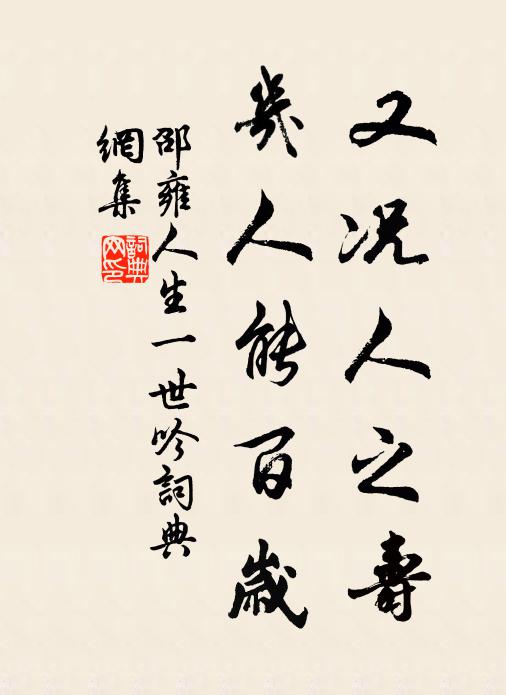 又况人之壽
幾人能百歲
邵雍人生一世吟詞典
網集
詞典
网印